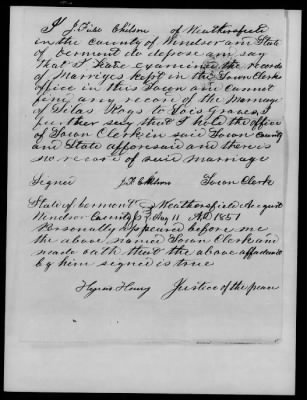 I J. Fisk Chilson of Weathersfield
in the County of Windsor and State
of Vermont do depose and say
That I have examined the records
of Marriges kept in the Town Clerks
office in this Town and Cannot
find any record of the Marriage
of Silas Hays to Lois Graves I
further say that I hold the office
of Town Clerk in said Town County
and State afforesaid and there is
no record of said marriage
Signed J. F. Chilson Town Clerk
State of Vermont Weathersfield August
Windsor County SS 11 A.D. 1857
Personally Appeared before me
the above named Town Clerk and
made oath that the above affadavit
by him signed is true
Henry Justice of the peace